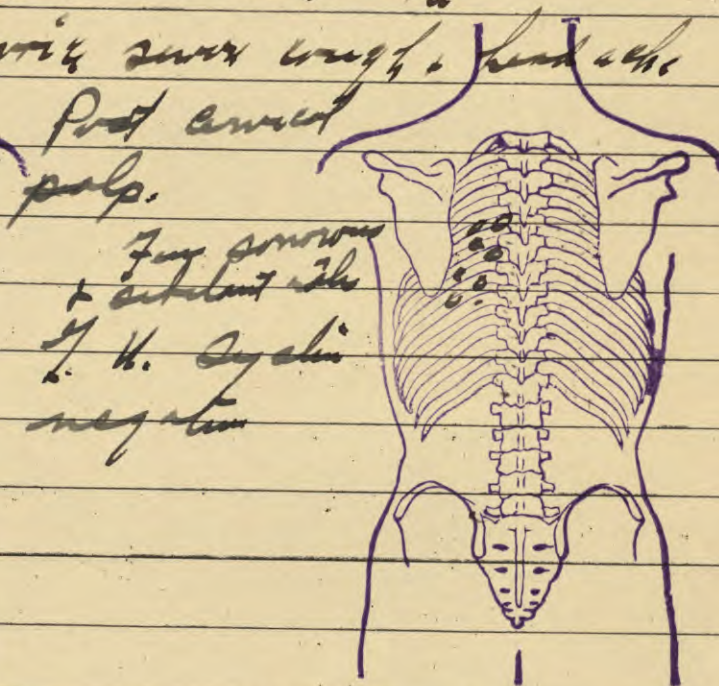 severe cough & headache
Post cervical
palp.
Few sonorous
& sibilant rales
G. U. System
negative